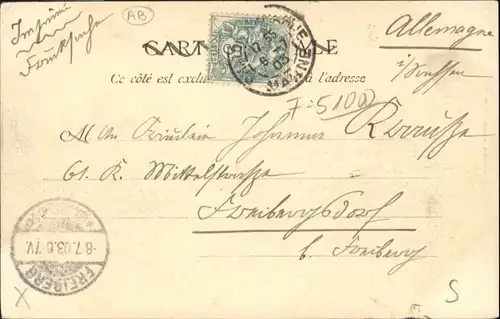 Imprimé
Drucksache
AB
Allemagne
i/Sachsen
CARTE POSTALE
Ce côté est exclu à l'adresse
F=5100
An Fräulein Johanna
61. K. Mittelstraße
Freibergsdorf
b. Freiberg
FREIBERG
-8.7.03.6-7V.
X
S